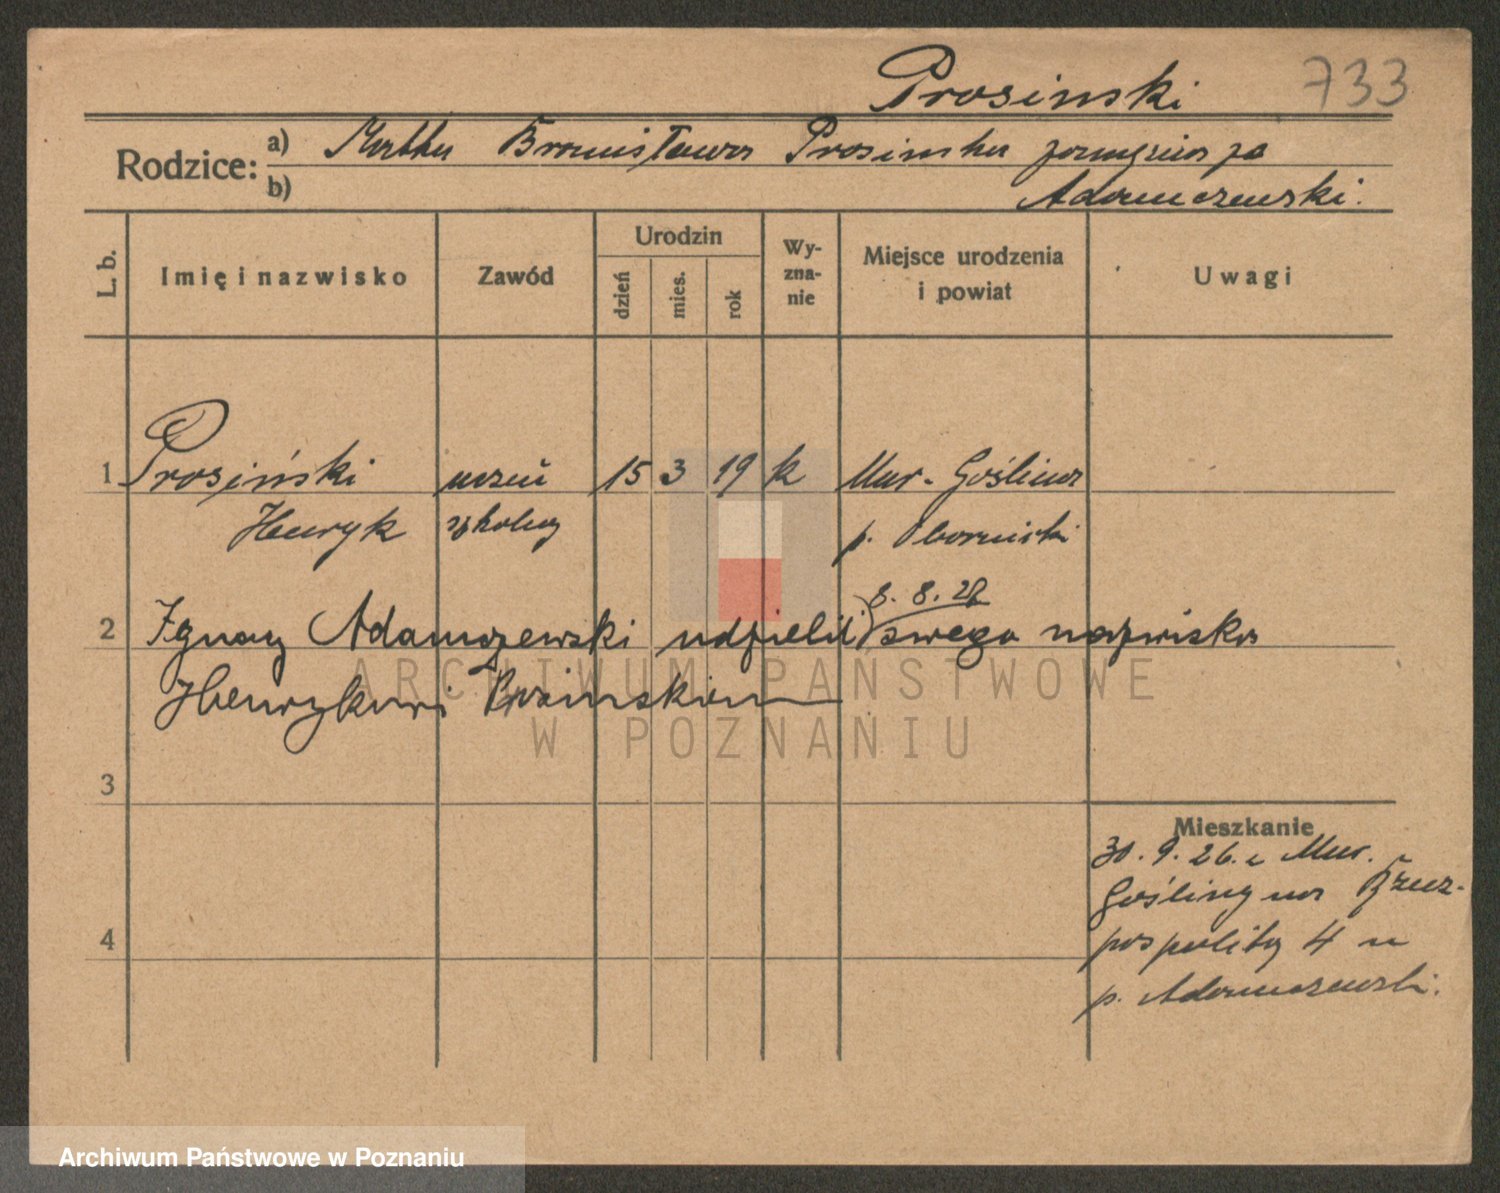 Prosinski 733
Rodzice: a) Matka Bronisława Prosinska zamężna za
b) Adamczewski.
L. b. Imię i nazwisko Zawód Urodzin dzień mies. rok Wy-zna-nie Miejsce urodzenia i powiat Uwagi
1 Prosiński uczeń 15 3 19 k Mur. Goślina
Henryk szkolny p. Obornicki
8. 8. 28
2 Ignacy Adamczewski udzielił swego nazwiska
Henrykowi Prosinskiem
3
Mieszkanie
30. 9. 26. z Mur.
Gośliny na Rzecz-
pospolitej 4 u
4
p. Adamczewski.
ARCHIWUM PAŃSTWOWE
W POZNANIU
Archiwum Państwowe w Poznaniu